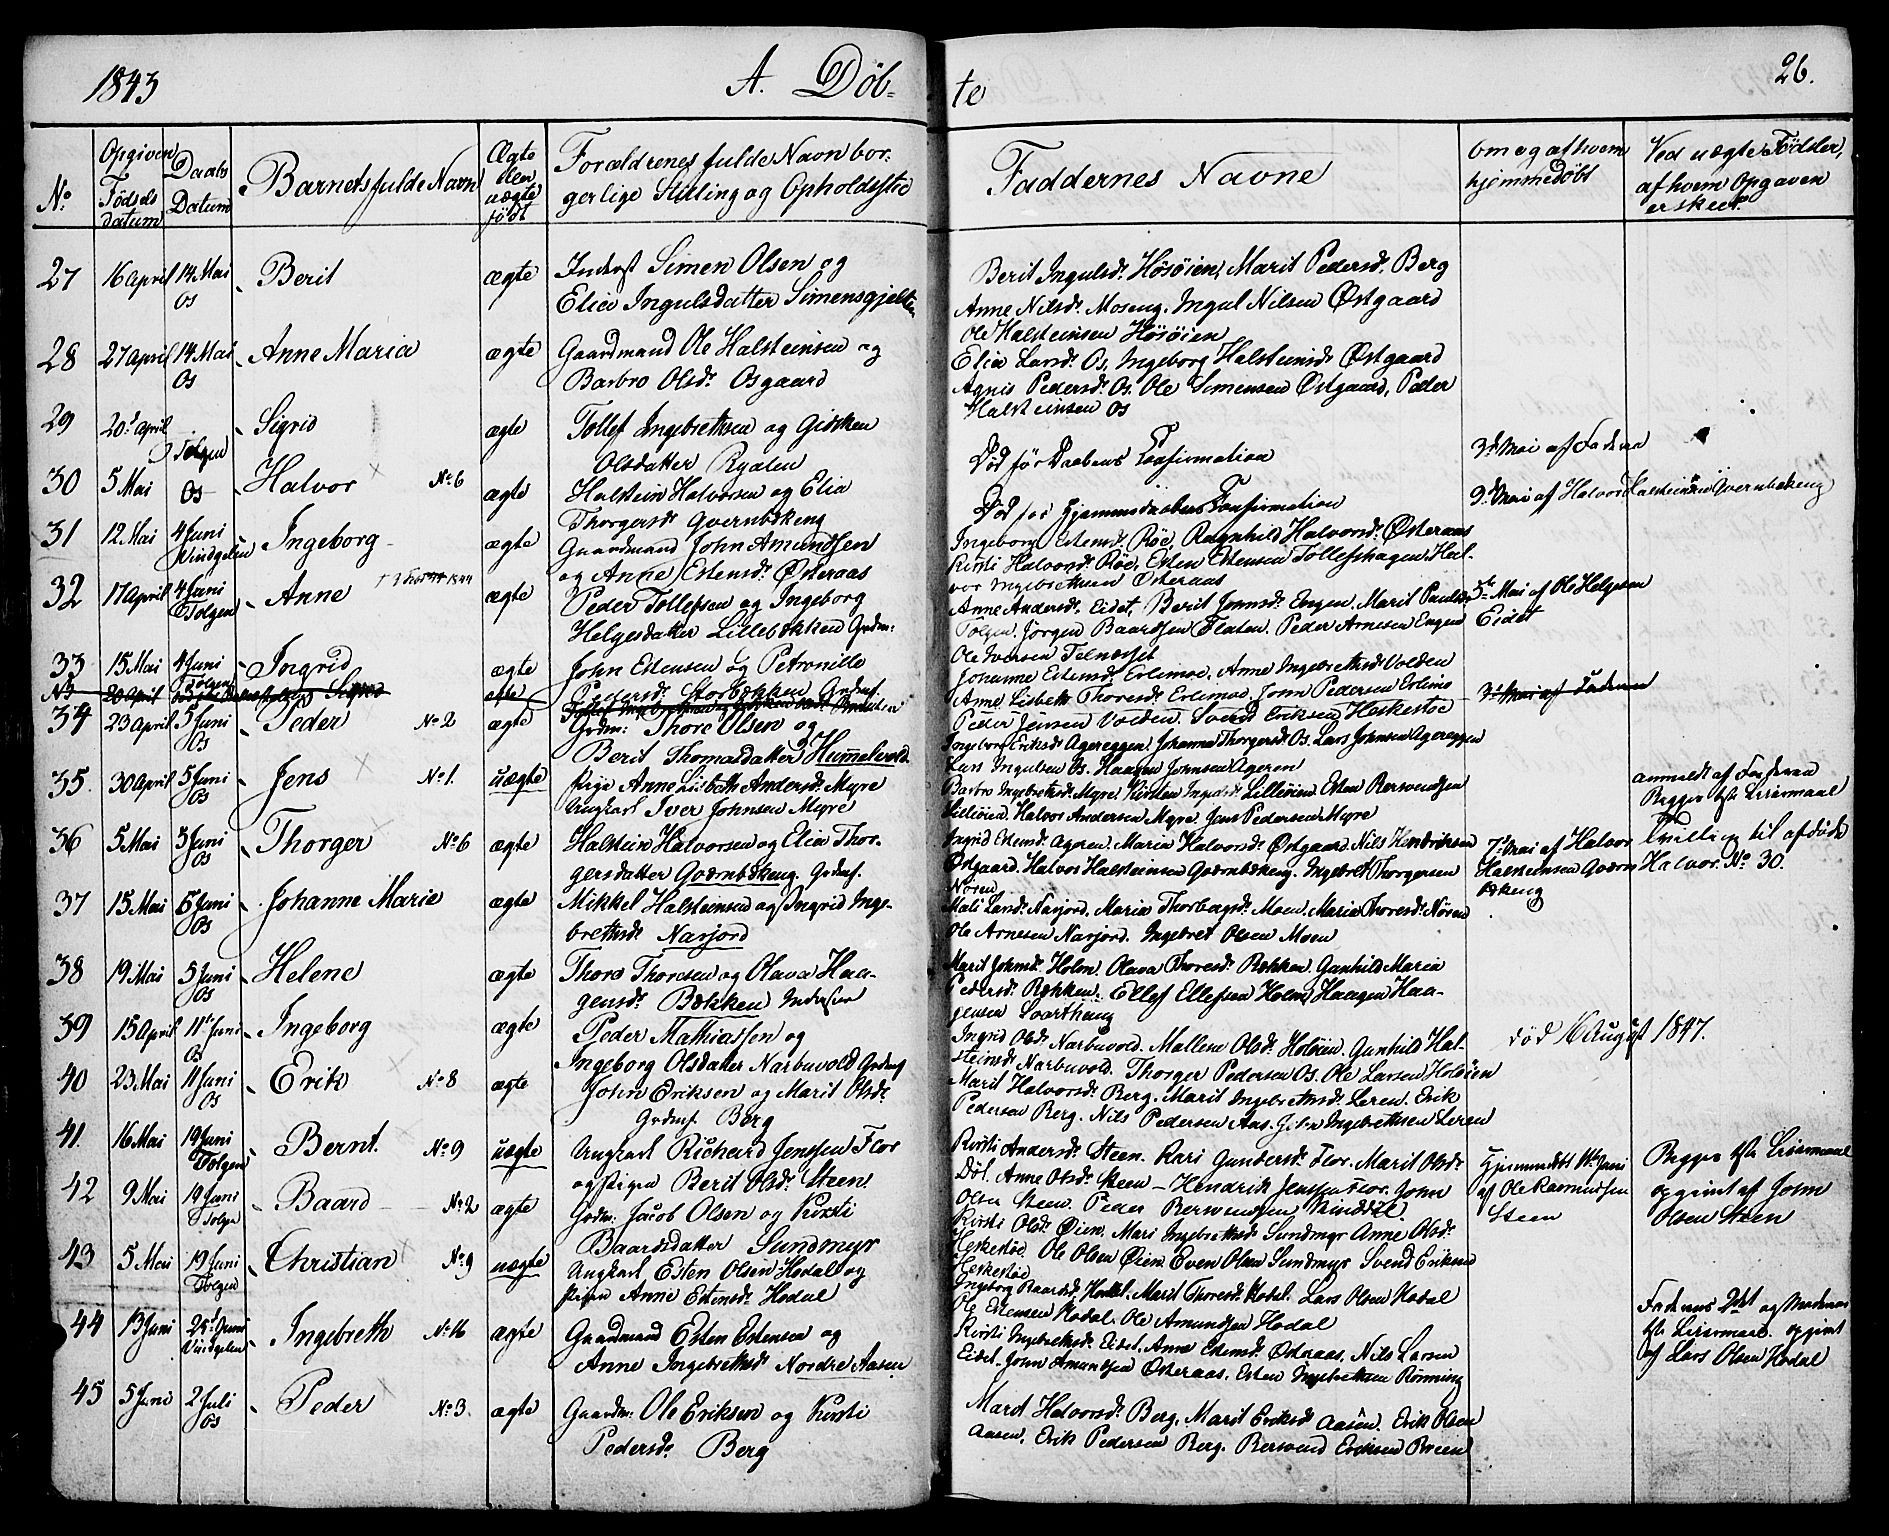 1843 A. Døb-
te 26.
No Opgiven Fødsels datum Daabs Datum Barnets fulde Navn Ægte eller uægte født Forældrenes fulde Navn bor-
gerlige Stilling og Opholdssted
Faddernes Navne om og af hvem hjemmedøbt Ved uægte Fødsler, af hvem Opgaven er skeet.
27 16 April 14 Mai Os Berit ægte Inderst Simen Olsen og
Elia Ingulsdatter Simensgjelten
Berit Ingulsdr. Høsøien, Marit Pedersdr. Berg
Anne Nilsdr. Moseng. Ingul Nilsen Østgaard
Ole Halsteinsen Høsøien
28 27 April 14 Mai Os Anne Maria ægte Gaardmand Ole Halsteinsen og
Barbro Olsdr. Osgaard
Elia Larsdr. Os, Ingeborg Halsteinsdr Østgaard
Agnis Pedersdr. Os. Ole Simensen Østgaard, Peder
Halsteinsen Os
29 20d April Tolgen Sigrid ægte Tollef Ingebrethsen og Gidsken
Olsdatter Ryalen
Død før Daabens Confirmation
3d Mai af Faderen
30 5 Mai Os Halvor No 6 ægte Halstein Halvorsen og Elia
Thorgersdr. Qvernbækeng
Død før Hjemmedaabens Confirmation
9d Mai af Halvor Halsteinsen Qvernbækeng
31 12 Mai 4 Juni Vindgelen Ingeborg ægte Gaardmand John Amundsen
og Anne Estensdr. Østeraas
Ingeborg Estensdr. Røe, Ragnhild Halvorsdr. Østeraas
Kirsti Halvorsdr. Røe, Esten Estensen Tollefshagen, Hal-
vor Ingebrethsen Østeraas
32 17 April 4 Juni Tolgen Anne 1844 ægte Peder Tollefsen og Ingeborg
Helgesdatter Lillebækken Grdm:
Anne Andersdr. Eidet, Berit Jonsdr. Engen. Marit Paulsdr
Tolgen. Jørgen Baardsen Flaten. Peder Arnesen Engen
Ole Iversen Telnesset
5te Mai af Ole Helgesen
Eidet
33 15 Mai 4 Juni Tolgen Ingrid ægte John Estensen og Petronille
Pedersdr. Storbækken Grdmf.
Johanne Estensdr. Erlimoe, Anne Ingebrethsdr Volden
Anne Lisbeth Thoresdr. Erlimoe. John Pedersen Erlimo
Peder Jensen Volden. Svend Eriksen Heskestøe
No 20 April Sigrid ægte
3d Mai af Faderen
34 23 April 5 Juni Os Peder No 2 ægte Grdm: Thore Olsen og
Berit Thomasdatter Hummelvold
Ingeborg Eriksdr Agereggen. Johanne Thorgersdr. Os. Lars Johnsen Agereggen
Lars Ingulsen Os. Haagen Johnsen Ageren
35 30 April 5 Juni Os Jens No 1. uægte Pige Anne Lisbeth Andersdr. Myre
Ungkarl Iver Johnsen Myre
Barbro Ingebrethsdr. Myre. Kirsten Ingulsdr. Lilleøien. Esten Bersvendsen
Lilleøien. Halvor Andersen Myre. Jens Pedersen Myre
anmeldt af Faderen
Begges 1ste Leiermaal
36 5 Mai 5 Juni Os Thorger No 6 ægte Halstein Halvorsen og Elia Thor-
gersdatter Qværnbækeng. Grdmf.
Ingrid Estensdr. Ageren. Maria Halvorsdr. Østgaard. Nils Hendriksen
Østgaard. Halvor Halsteinsen Qværnbækeng. Ingebret Thorgersen
Nøren
7d Mai af Halvor
Halsteinsen Qværn
bækeng
Tvilling til afdøde
Halvor. No 30.
37 15 Mai 5 Juni Os Johanne Marie ægte Mikkel Halsteinsen og Ingrid Inge-
brethsdr Narjord
Mali Larsdr. Narjord. Maria Thorbergsdr. Moen. Maria Thoresdr. Nøren
Ole Arnesen Narjord. Ingebret Olsen Moen
38 19 Mai 5 Juni Os Helene ægte Thore Thoresen og Olava Haa-
gensdr. Bækken Inderster
Marit Johnsdr. Holm. Olava Thoresdr. Bækken. Gunhild Maria
Pedersdr. Bækken. Ellef Ellefsen Holm. Haagen Haa-
gensen
39 15 April 11te Juni Os Ingeborg ægte Peder Mathiassen og
Ingeborg Olsdatter Narbuvold Grdmf
Ingrid Olsdr. Narbuvold. Mallene Olsdr. Holøien. Gunhild Hal-
steinsdr. Narbuvold. Thorger Pedersen Os. Ole Larsen Holøien
død 16 August 1847.
40 23 Mai 11 Juni Os Erik No 8 ægte John Eriksen og Marit Olsdr.
Grdmf. Berg
Marit Halvorsdr. Berg. Marit Ingebrethsdr. Leren. Erik
Pedersen Berg. Nils Pedersen Aas. John Ingebrethsen Leren
41. 16 Mai 19 Juni Tolgen Bernt. No 9 uægte Ungkarl Richard Jenssen Flor
og Pigen Berit Olsdr. Steen
Kirsti Andersdr. Steen. Kari Gundersdr. Flor. Marit Olsdr.
Døl. Anne Olsdr. Steen - Hendrik Jenssen Flor. John
Olsen Steen. Peder Bersvendsen
Hjemmedøbt Juni
af Ole Rasmussen
Steen
Begges 1ste Leiermaal
opgivet af John
Olsen Steen
42 9 Mai 19 Juni Tolgen Baard No 2 ægte Grdm: Jacob Olsen og Kirsti
Baardsdatter Sundmyr
Kirsti Olsdr. Øien. Mari Ingebrethsdr. Sundmyr Anne Olsdr.
Heskestøe. Ole Olsen Øien. Even Olsen Sundmyr Svend Eriksen
Heskestøe
43 5 Mai 19 Juni Tolgen Christian No 9 uægte Ungkarl Esten Olsen Hodal og
Pigen Anne Estensdr. Hodal
Ingeborg Baardsdr. Hodal. Marit Thoresdr. Hodal. Lars Olsen Hodal
Ole Estensen Hodal. Ole Amundsen Hodal
Faderens 2det og Moderens
1ste Leiermaal. opgivet
af Lars Olsen Hodal
44 13 Juni 25d Juni Vindgelen Ingebreth No 16 ægte Gaardmand Esten Estensen og
Anne Ingebrethsdr Nordre Aasen
Kirsti Ingebrethsdr. Eidet. Anne Estensdr. Østeraas. Nils Larsen
Eidet. John Amundsen Østeraas. Esten Ingebrethsen Rønning
45 5 Juni 2 Juli Os Peder No 3. ægte Gaardm: Ole Eriksen og Kirsti
Pedersdr. Berg
Marit Halvorsdr. Berg. Marit Eriksdr Aasen. Erik Olsen
Aasen. Erik Pedersen Berg. Bersvend Eriksen Breen